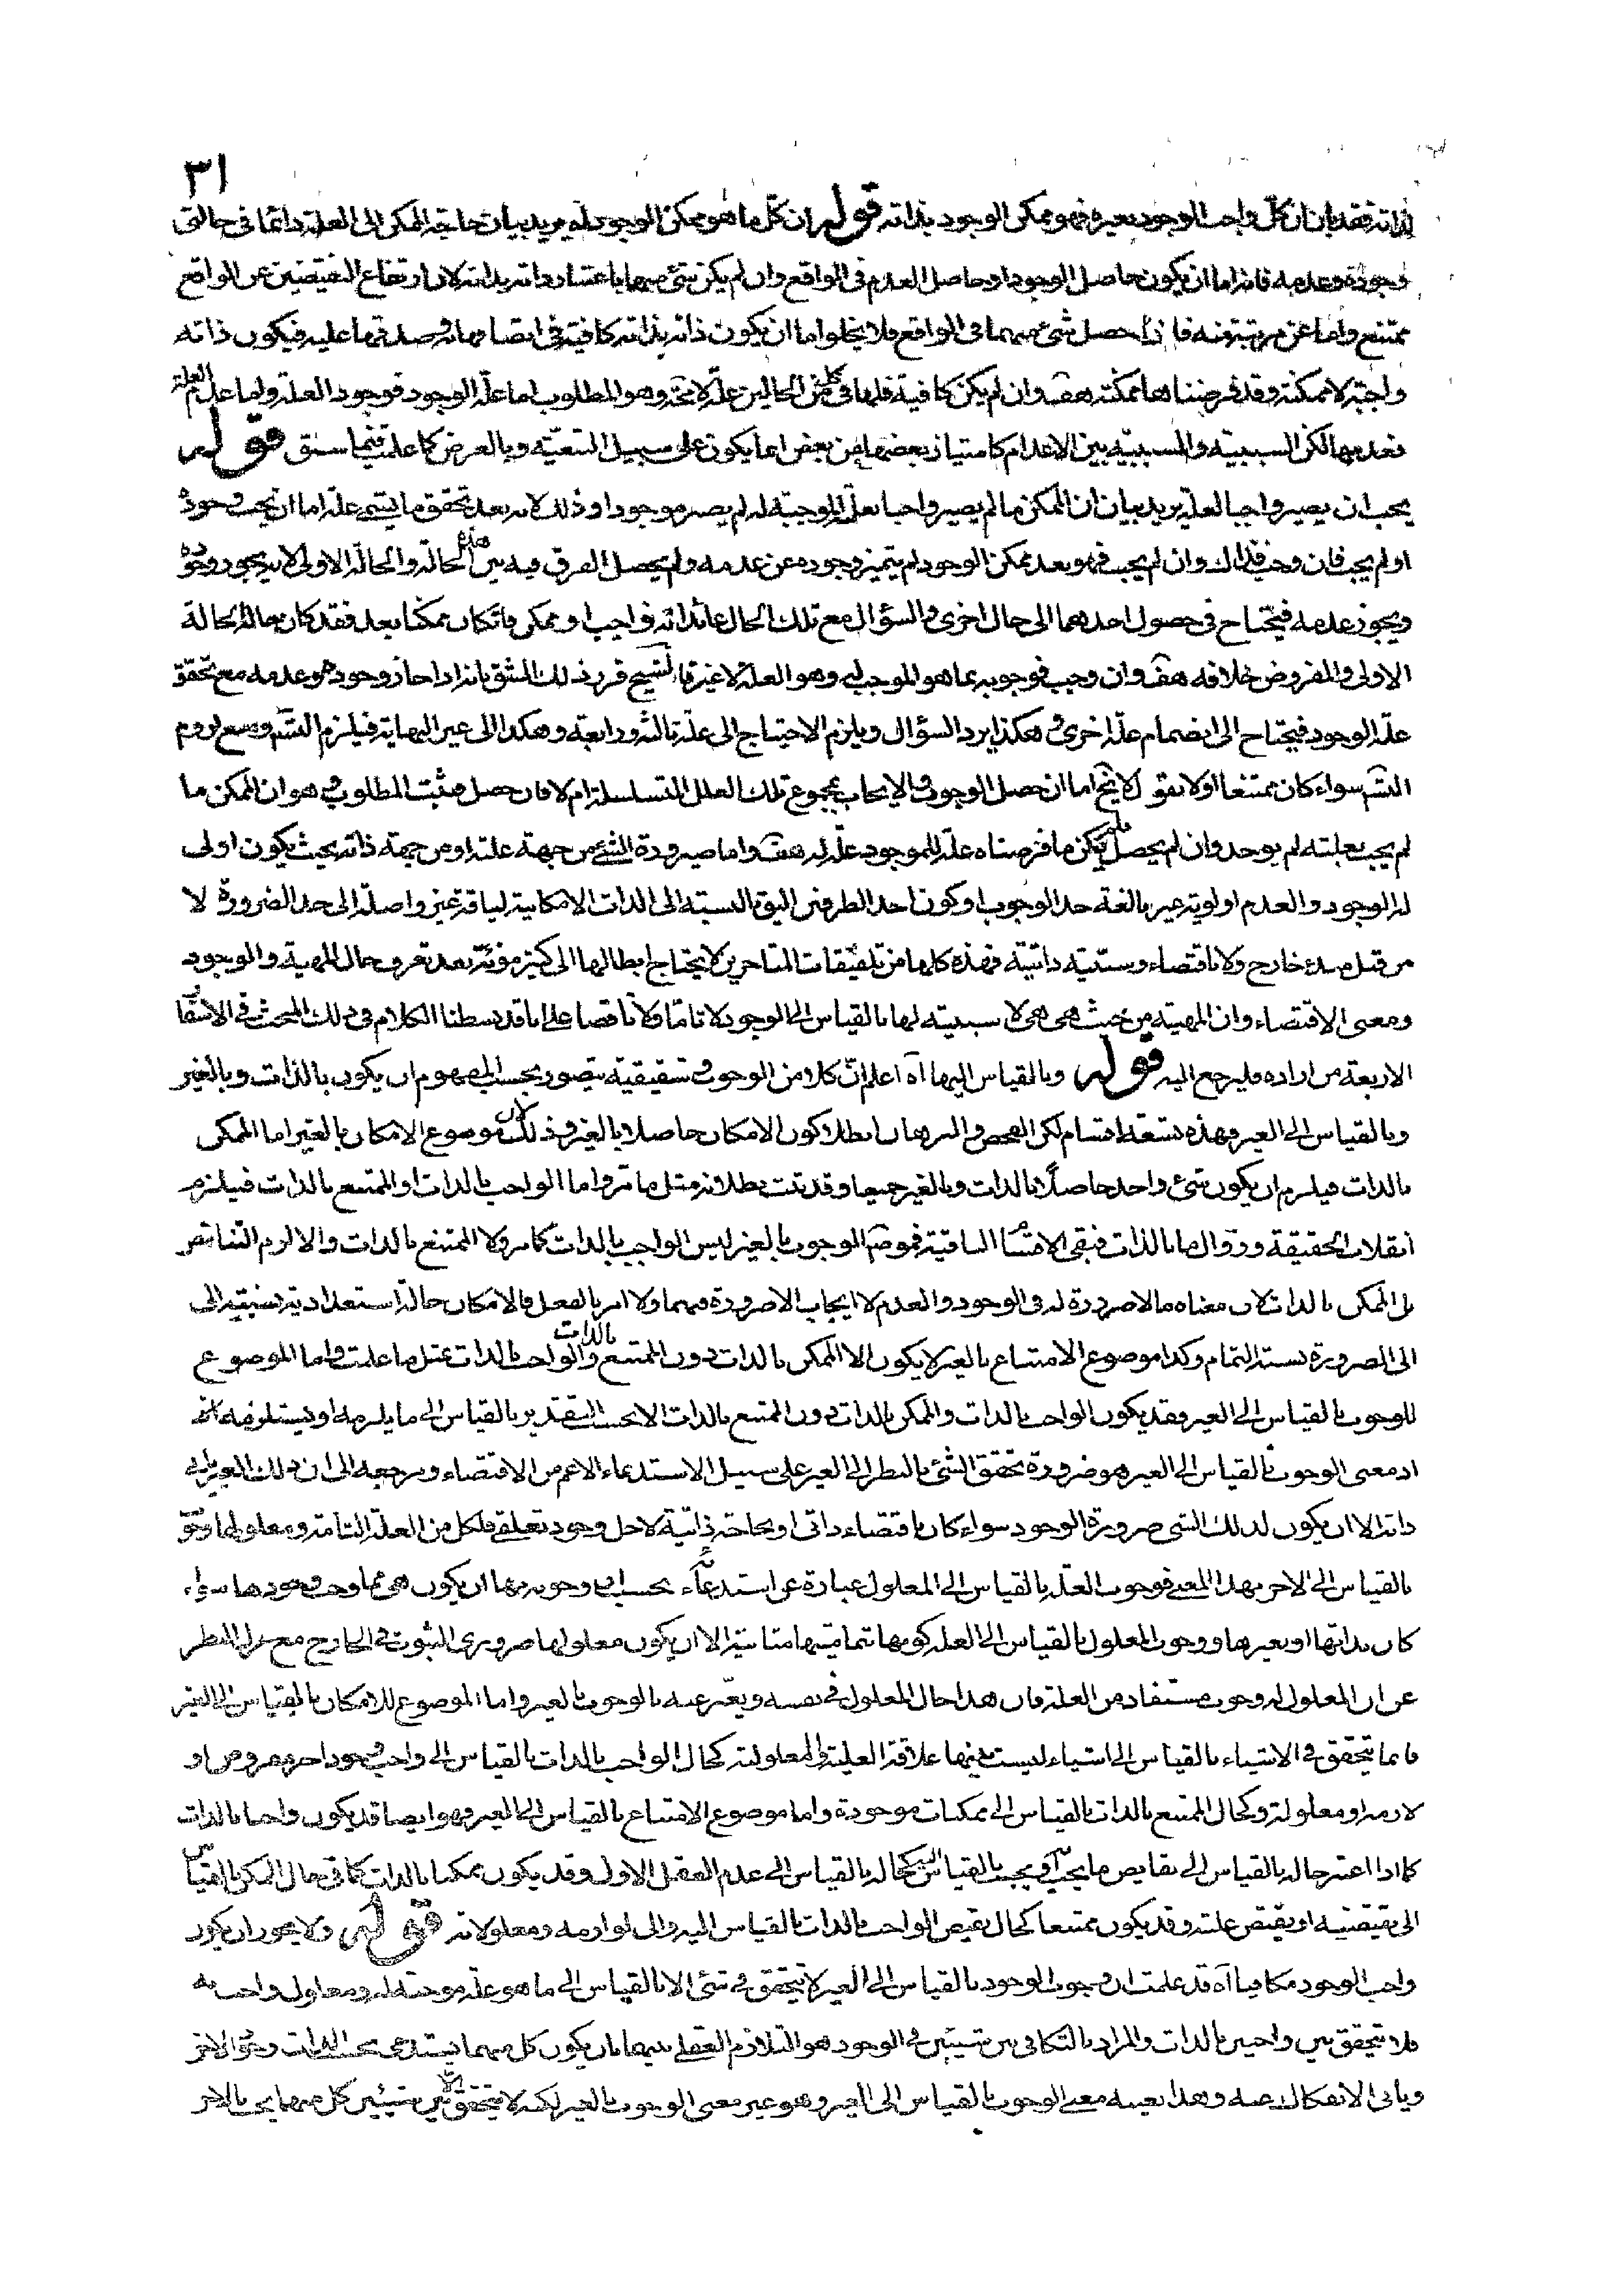 ٣١
لذاته فقد بان ان كل واجب الوجود بغيره فهو ممكن الوجود بذاته قوله ان كل ما هو ممكن الوجود آه يريد بيان حاجة الممكن الى العلة دائما في حالتي
وجوده وعدمه فانه اما ان يكون حاصل الوجود او حاصل العدم في الواقع وان لم يكن شئ منهما باعتبار ذاته بذاته لان ارتفاع النقيضين عن الواقع
ممتنع واما عن مرتبة منه فاذا حصل شئ منهما في الواقع فلا يخلوا اما ان يكون ذاته بذاته كافية في اتصافها او صدقهما عليه فيكون ذاته
واجبة لا ممكنة وقد فرضناها ممكنة هف وان لم يكن كافية فلها في كل من الحالين علة لا محة وهو المطلوب اما علة الوجود فوجود العلة واما علة العدم
فعدمها لكن السببية والمسببية بين الاعدام كامتياز بعضها عن بعض انما يكون على سبيل التبعية وبالعرض كما علمت فيما سبق قوله
يجب ان يصير واجبا بالعلة يريد بيان ان الممكن ما لم يصير واجبا بعلة الموجبة له لم يصر موجودا وذلك لانه بعد تحقق ما يسمى علة اما ان يجب وجوده
او لم يجب فان وجب فذاك وان لم يجب فهو بعد ممكن الوجود لم يتميز وجوده عن عدمه ولم يحصل الفرق فيه بين هذه الحالة والحالة الاولى لانه يجوز وجوده
ويجوز عدمه فيحتاج في حصول احدهما الى حال اخرى والسؤال مع تلك الحال عائد انه واجب او ممكن فان كان ممكنا بعد فقد كان حاله الحالة
الاولى والمفروض خلافه هف وان وجب فوجوبه بما هو الموجب له وهو العلة لا غير والشيخ قرر ذلك الشق بانه اذا جاز وجوده وعدمه مع تحقق
علة الوجود فيحتاج الى انضمام علة اخرى وهكذا يرد السؤال ويلزم الاحتياج الى علة ثالثة ورابعة وهكذا الى غير النهاية فيلزم التس ومع لزوم
التس سواء كان ممتنعا او لا نقول لا يخ اما ان حصل الوجوب والايجاب بمجموع تلك العلل المتسلسلة ام لا فان حصل فثبت المطلوب وهو ان الممكن ما
لم يجب بعلته لم يوجد وان لم يحصل فلم يكن ما فرضناه علة للموجود علة له هف واما صيرورة الشئ من جهة علته او من جهة ذاته بحيث يكون اولى
له الوجود والعدم اولوية غير بالغة حد الوجوب او كون احد الطرفين اليق بالنسبة الى الذات الامكانية لياقة غير واصلة الى حد الضرورة لا
من قبل مبدء خارج ولا باقتضاء وسببية ذاتية فهذه كلها من تلفيقات المتاخرين لا يحتاج ابطالها الى كثير مؤنة بعد تعرف حال المهية والوجود
ومعنى الاقتضاء وان المهية من حيث هي هي لا سببية لها بالقياس الى الوجود لا تاما ولا ناقصا على انا قد بسطنا الكلام في ذلك المبحث في الاسفار
الاربعة من اراده فليرجع اليه قوله وبالقياس اليها آه اعلم ان كلا من الوجوب وشقيقيه يتصور بحسب المفهوم ان يكون بالذات وبالغير
وبالقياس الى الغير فهذه تسعة اقسام لكن الفحص والبرهان ابطلا كون الامكان حاصلا بالغير وذلك لان موضوع الامكان بالغير اما الممكن
بالذات فيلزم ان يكون شئ واحد حاصلا بالذات وبالغير جميعا وقد ثبت بطلانه مثل ما مر واما الواجب بالذات او الممتنع بالذات فيلزم
انقلاب الحقيقة وزوال ما بالذات فبقي الاقسام الباقية فموضع الوجوب بالغير ليس الواجب بالذات كما مر ولا الممتنع بالذات والا لزم التناقض
بل الممكن بالذات لان معناه ما لا ضرورة له في الوجود والعدم لا ايجاب الا ضرورة فيهما ولا امر بالفعل فالامكان حالة استعدادية نسبته الى
الى الضرورة نسبة التمام وكذا موضوع الامتناع بالغير لا يكون الا الممكن بالذات دون الممتنع بالذات والواجب بالذات بمثل ما علمت واما الموضوع
للوجوب بالقياس الى الغير فقد يكون الواجب بالذات والممكن بالذات دون الممتنع بالذات الا بحسب التقدير بالقياس الى ما يلزمه او يستلزمه
اذ معنى الوجوب بالقياس الى الغير هو ضرورة تحقق الشئ بالنظر الى الغير على سبيل الاستدعاء الاعم من الاقتضاء ويرجعه الى ان ذلك الغير يابى
ذاته الا ان يكون لذلك الشئ ضرورة الوجود سواء كان باقتضاء ذاتي او بحاجة ذاتية لاجل وجود تعلقي فلكل من العلة التامة ومعلولها وجوب
بالقياس الى الاخر بهذا المعنى فوجوب العلة بالقياس الى المعلول عبارة عن استدعائه بحسب وجوبه بها ان يكون هي مما وجب وجودها سواء
كان بذاتها او بغيرها ووجوب المعلول بالقياس الى العلة كونها بتماميتها متابية الا ان يكون معلولها ضروري الثبوت في الخارج مع عزل النظر
عن ان المعلول له وجوب مستفاد من العلة فان هذا حال المعلول في نفسه ويعبر عنه بالوجوب بالغير واما الموضوع للامكان بالقياس الى الغير
فانما يتحقق في الاشياء بالقياس الى اشياء ليست بينها علاقة العلية والمعلولية كحال الواجب بالذات بالقياس الى واجب وجود اخر مفروض او
لازمه او معلوله وكحال الممتنع بالذات بالقياس الى ممكنات موجودة واما موضوع الامتناع بالقياس الى الغير فهو ايضا قد يكون واجبا بالذات
كما اذا اعتبر حاله بالقياس الى نقايض ما يجب به او يجب بالقياس اليه كحاله بالقياس الى عدم العقل الاول وقد يكون ممكنا بالذات كما في حال الممكن بالقياس
الى نقيضه او نقيض علته وقد يكون ممتنعا كحال نقيض الواجب بالذات بالقياس اليه والى لوازمه ومعلولاته قوله ولا يجوز ان يكون
واجب الوجود مكافيا آه قد علمت ان وجوب الوجود بالقياس الى الغير لا يتحقق في شئ الا بالقياس الى ما هو علة موجبة له او معلول واجب به
فلا يتحقق بين واجبين بالذات والمراد بالتكافى بين شيئين في الوجود هو التلازم العقلي بينهما بان يكون كل منهما يستدعي بحسب الذات وجود الاخر
ويابى الانفكاك عنه وهذا بعينه معنى الوجوب بالقياس الى الغير وهو غير معنى الوجوب بالغير لكنه لا يتحقق الا بين شيئين كل منهما يجب بالاخر